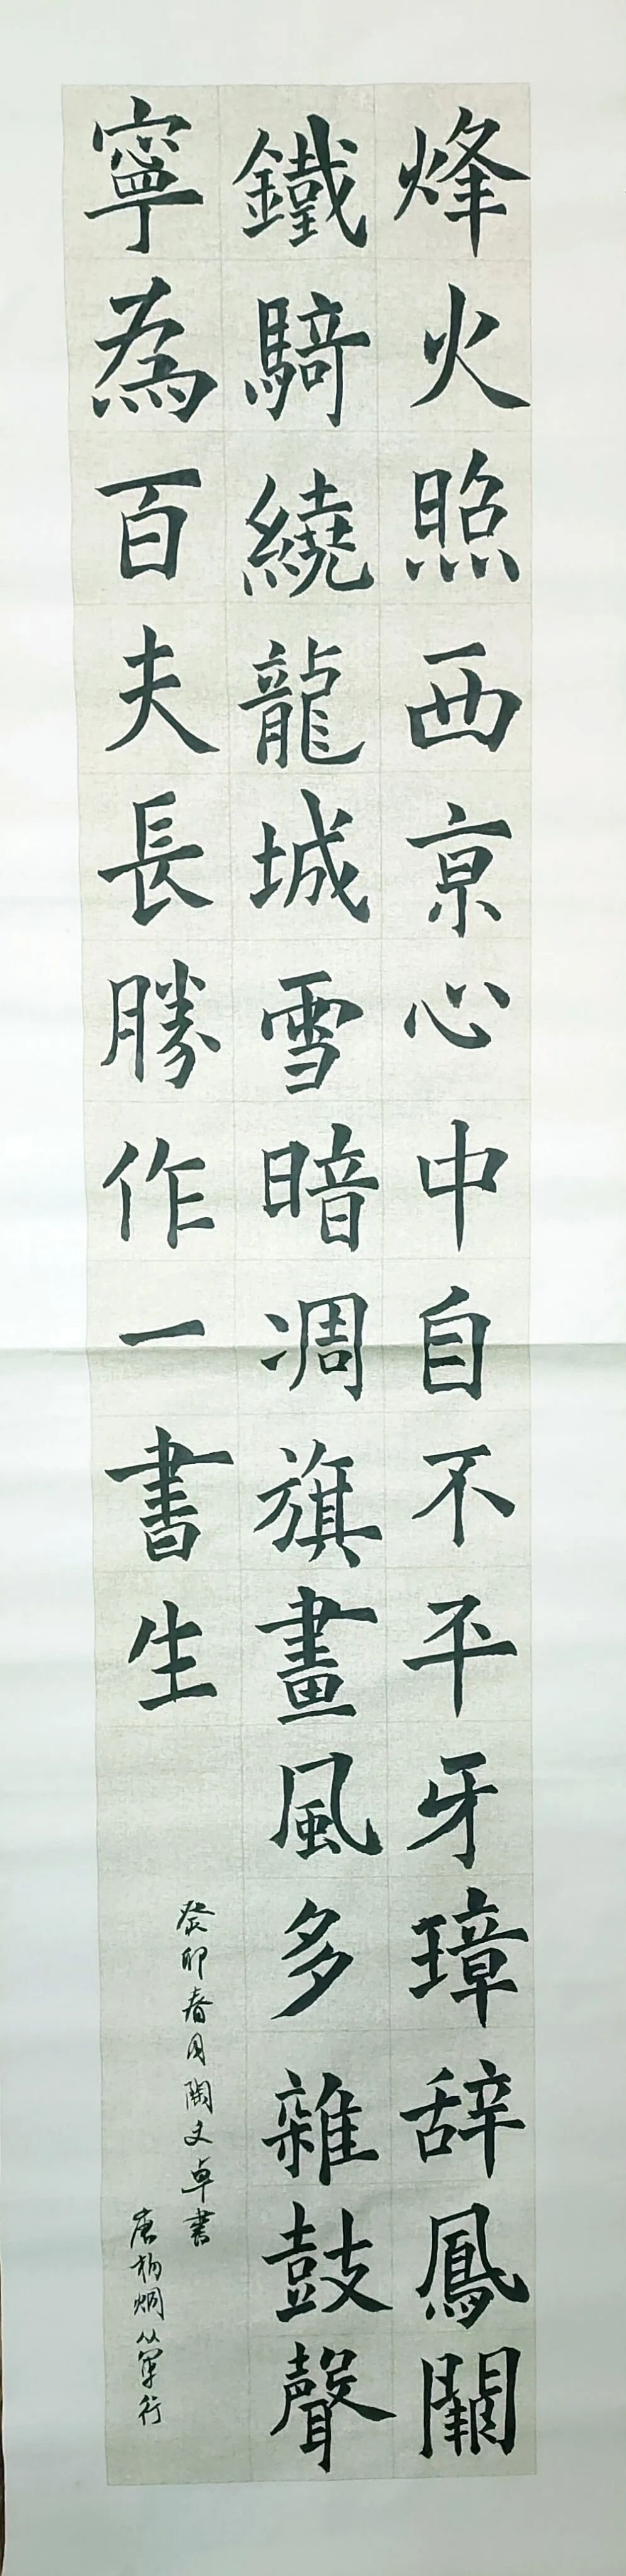 烽火照西京心中自不平牙璋辞鳳闕
鐵騎繞龍城雪暗凋旗畫風多雜鼓聲
寧為百夫長勝作一書生
癸卯春月陶文卓書
唐楊炯從軍行